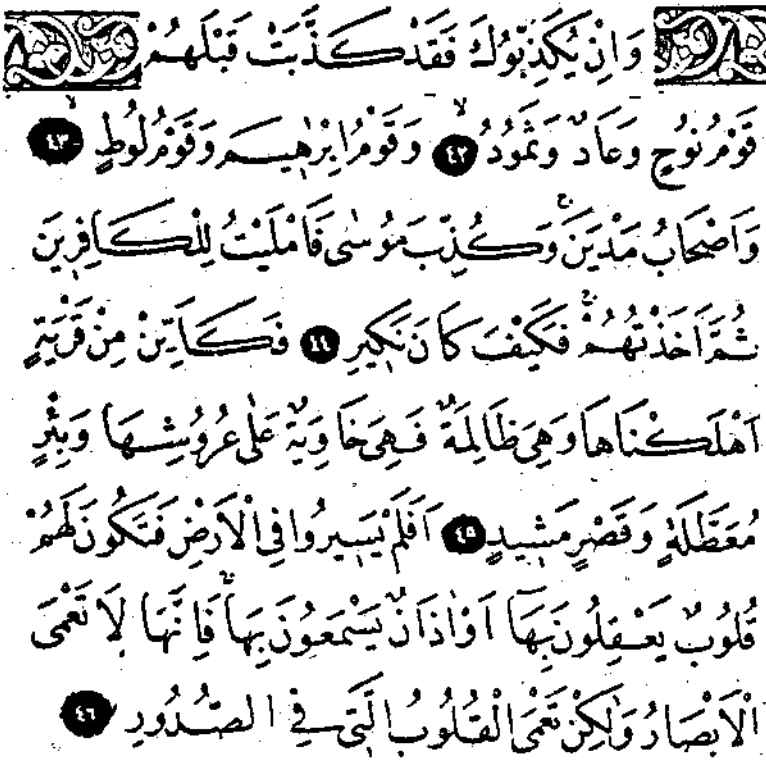 وَاِنْ يُكَذِّبُوكَ فَقَدْ كَذَّبَتْ قَبْلَهُمْ
قَوْمُ نُوحٍ وَعَادٌ وَثَمُودُۙ ٤٢ وَقَوْمُ اِبْرٰهٖيمَ وَقَوْمُ لُوطٍۙ ٤٣
وَاَصْحَابُ مَدْيَنَۚ وَكُذِّبَ مُوسٰى فَاَمْلَيْتُ لِلْكَافِرٖينَ
ثُمَّ اَخَذْتُهُمْۚ فَكَيْفَ كَانَ نَكٖيرِ ٤٤ فَكَاَيِّنْ مِنْ قَرْيَةٍ
اَهْلَكْنَاهَا وَهِيَ ظَالِمَةٌ فَهِيَ خَاوِيَةٌ عَلٰى عُرُوشِهَا وَبِئْرٍ
مُعَطَّلَةٍ وَقَصْرٍ مَشٖيدٍ ٤٥ اَفَلَمْ يَسٖيرُوا فِي الْاَرْضِ فَتَكُونَ لَهُمْ
قُلُوبٌ يَعْقِلُونَ بِهَٓا اَوْ اٰذَانٌ يَسْمَعُونَ بِهَاۚ فَاِنَّهَا لَا تَعْمَى
الْاَبْصَارُ وَلٰكِنْ تَعْمَى الْقُلُوبُ الَّتٖي فِي الصُّدُورِ ٤٦